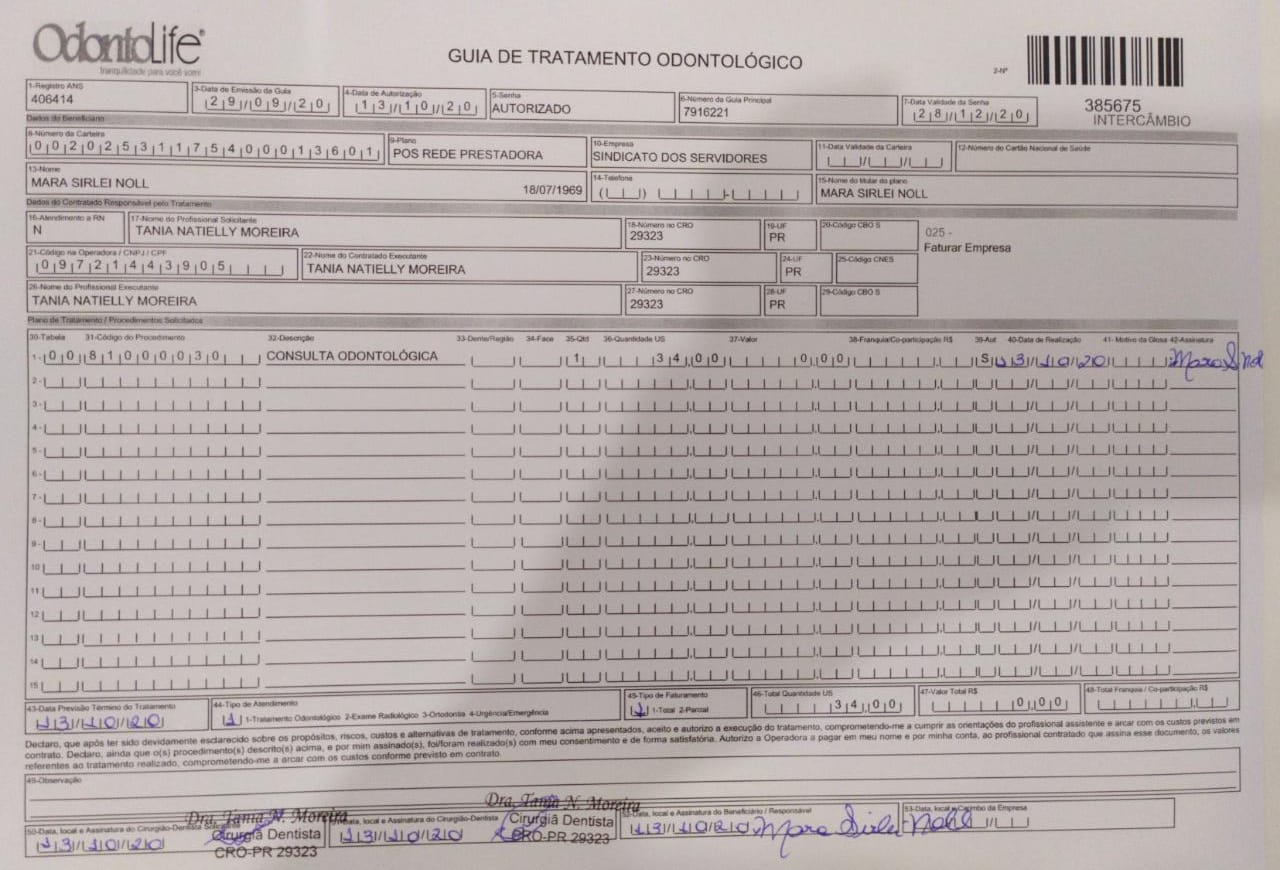 OdontoLife
tranquilidade para você sorrir
GUIA DE TRATAMENTO ODONTOLÓGICO
2-Nº
385675
INTERCÂMBIO
1-Registro ANS
406414
3-Data de Emissão da Guia
29/09/20
4-Data de Autorização
13/10/20
5-Senha
AUTORIZADO
6-Número da Guia Principal
7916221
7-Data Validade da Senha
28/12/20
Dados do Beneficiário
8-Número da Carteira
00202531175400013601
9-Plano
POS REDE PRESTADORA
10-Empresa
SINDICATO DOS SERVIDORES
11-Data Validade da Carteira
12-Número do Cartão Nacional de Saúde
13-Nome
MARA SIRLEI NOLL 18/07/1969
14-Telefone
15-Nome do titular do plano
MARA SIRLEI NOLL
Dados do Contratado Responsável pelo Tratamento
16-Atendimento a RN
N
17-Nome do Profissional Solicitante
TANIA NATIELLY MOREIRA
18-Número no CRO
29323
19-UF
PR
20-Código CBO S
025 -
Faturar Empresa
21-Código na Operadora / CNPJ / CPF
09721443905
22-Nome do Contratado Executante
TANIA NATIELLY MOREIRA
23-Número no CRO
29323
24-UF
PR
25-Código CNES
26-Nome do Profissional Executante
TANIA NATIELLY MOREIRA
27-Número no CRO
29323
28-UF
PR
29-Código CBO S
Plano de Tratamento / Procedimentos Solicitados
30-Tabela 31-Código do Procedimento 32-Descrição 33-Dente/Região 34-Face 35-Qtd 36-Quantidade US 37-Valor 38-Franquia/Co-participação R$ 39-Aut 40-Data de Realização 41- Motivo da Glosa 42-Assinatura
1- 00 81000030 CONSULTA ODONTOLÓGICA 1 34,00 0,00 S 13/10/20 Mara S Noll
2-
3-
4-
5-
6-
7-
8-
9-
10
11
12
13
14
15
43-Data Previsão Término do Tratamento
13/10/20
44-Tipo de Atendimento
1 1-Tratamento Odontológico 2-Exame Radiológico 3-Ortodontia 4-Urgência/Emergência
45-Tipo de Faturamento
1 1-Total 2-Parcial
46-Total Quantidade US
34,00
47-Valor Total R$
0,00
48-Total Franquia / Co-participação R$
Declaro, que após ter sido devidamente esclarecido sobre os propósitos, riscos, custos e alternativas de tratamento, conforme acima apresentados, aceito e autorizo a execução do tratamento, comprometendo-me a cumprir as orientações do profissional assistente e arcar com os custos previstos em
contrato. Declaro, ainda que o(s) procedimento(s) descrito(s) acima, e por mim assinado(s), foi/foram realizado(s) com meu consentimento e de forma satisfatória. Autorizo a Operadora a pagar em meu nome e por minha conta, ao profissional contratado que assina esse documento, os valores
referentes ao tratamento realizado, comprometendo-me a arcar com os custos conforme previsto em contrato.
49-Observação
50-Data, local e Assinatura do Cirurgião-Dentista Solicitante
13/10/20
Dra. Tania N. Moreira
Cirurgiã Dentista
CRO-PR 29323
Data, local e Assinatura do Cirurgião-Dentista
13/10/20
Dra. Tania N. Moreira
Cirurgiã Dentista
CRO-PR 29323
Data, local e Assinatura do Beneficiário / Responsável
13/10/20 Mara Sirlei Noll
53-Data, local e Carimbo da Empresa